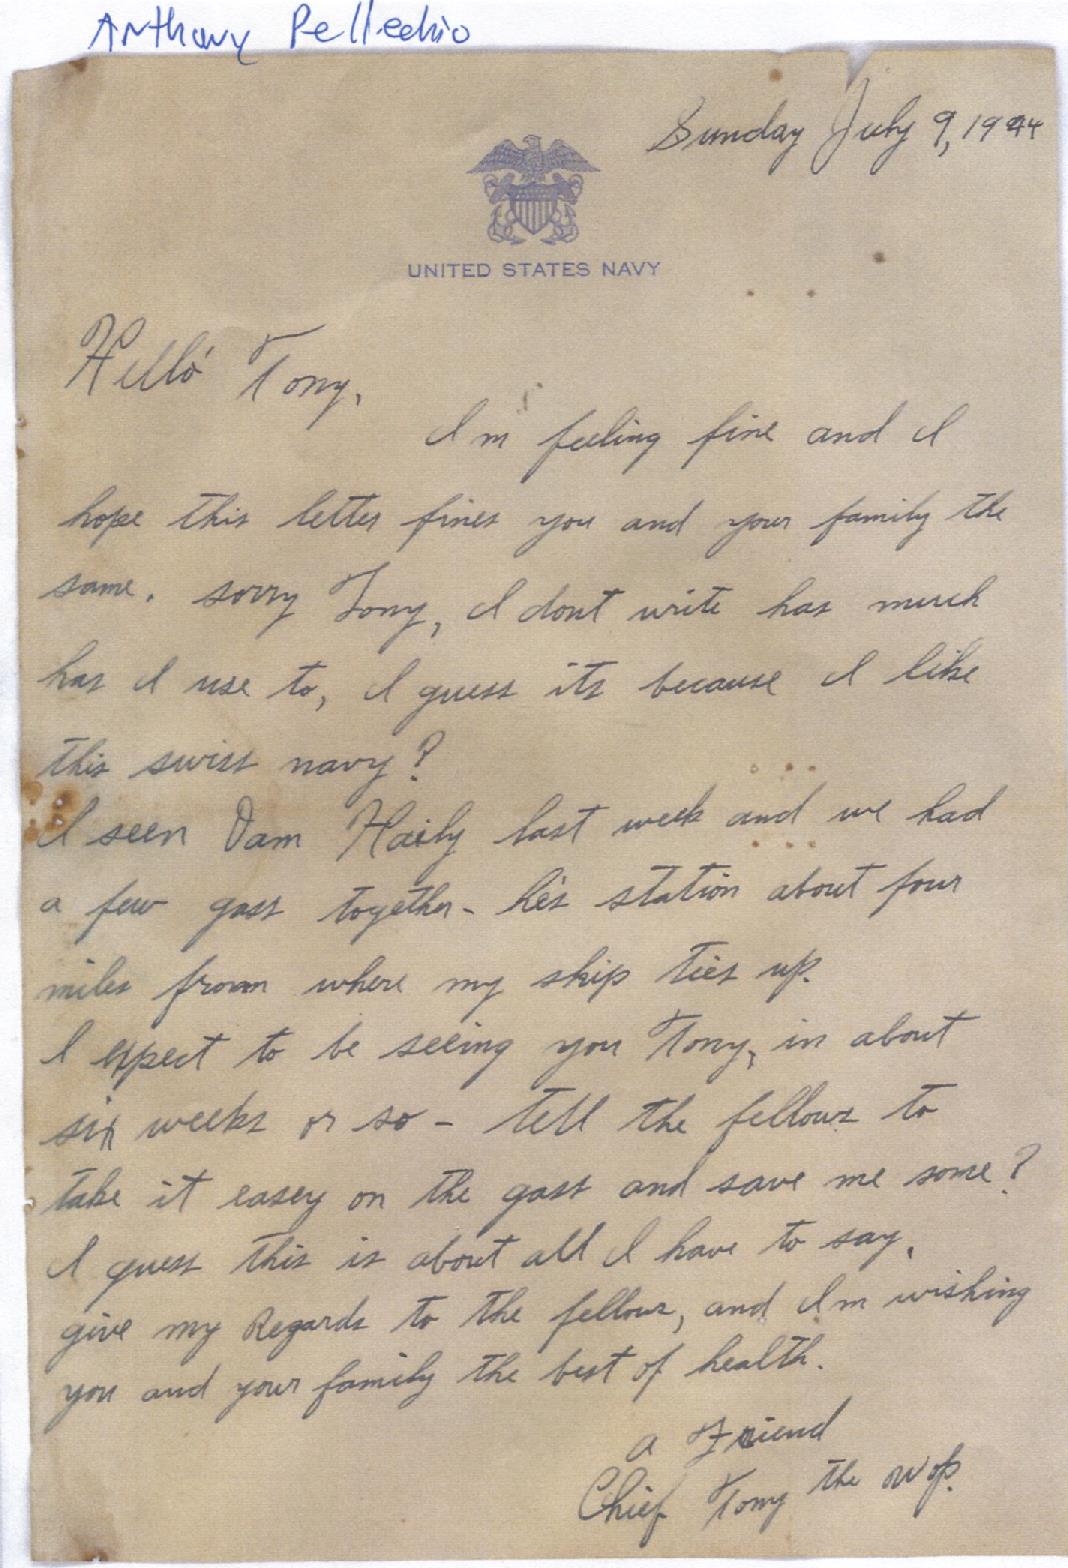 Anthony Pellechio
Sunday July 9, 1944
UNITED STATES NAVY
Hello Tony,
Im feeling fine and I
hope this letter fines you and your family the
same. sorry Tony, I dont write has much
has I use to, I guess its because I like
this swiss navy?
I seen Dam Haily last week and we had
a few gass together - he's station about four
miles from where my ship ties up.
I expect to be seeing you Tony, in about
six weeks or so - tell the fellows to
take it easey on the gass and save me some?
I guess this is about all I have to say,
give my Regards to the fellows, and Im wishing
you and your family the best of health.
a Friend
Chief Tony the wop.